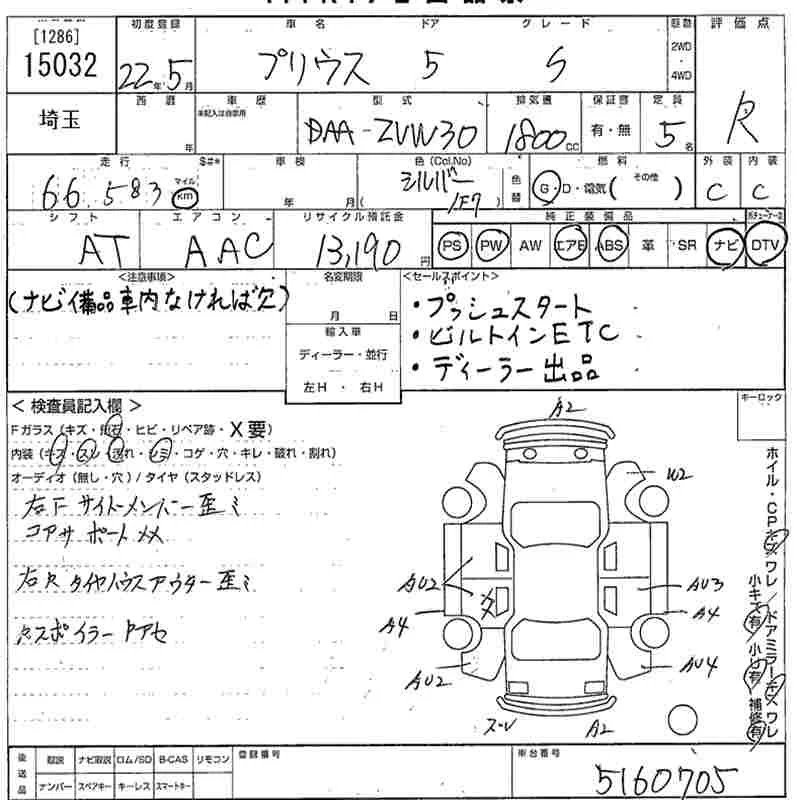 [1286]
15032
埼玉
初度登録
22年5月
車名 ドア グレード
プリウス 5 S
駆動
2WD
4WD
評価点
R
西暦
年
車歴
未記入は自家用
型式
DAA-ZVW30
排気量
1800cc
保証書
有・無
定員
5名
走行
$#*
66,583
マイル
km
車検
年 月
色(Col.No)
シルバー
(1F7)
色替
燃料
G・D・電気( その他 )
外装
C
内装
C
シフト
AT
エアコン
AAC
リサイクル預託金
13,190円
純正装備品
PS PW AW エアB ABS 革 SR ナビ
DTV
<注意事項>
(ナビ備品車内なければ欠)
名変期限
月 日
輸入車
ディーラー・並行
左H・右H
<セールスポイント>
・プッシュスタート
・ビルトインETC
・ディーラー出品
<検査員記入欄>
Fガラス(キズ・飛石・ヒビ・リペア跡・X要)
内装(キズ・スレ・汚れ・シミ・コゲ・穴・キレ・破れ・割れ)
オーディオ(無し・穴)/タイヤ(スタッドレス)
右F サイトーメンバー歪ミ
コアサポートメメ
右R タイヤハウスアウター歪ミ
スポイラー
キーロック
A2
W2
AU2
AU3
A4
A4
AU2
AU4
ズレ
A2
ホイル・CPキズワレ/ドアミラーキズワレ
小キズ有 小凹有 補修有
後送品
取説 ナビ取説 ロム/SD B-CAS リモコン
ナンバー スペアキー キーレス スマートキー
登録番号
車台番号
5160705